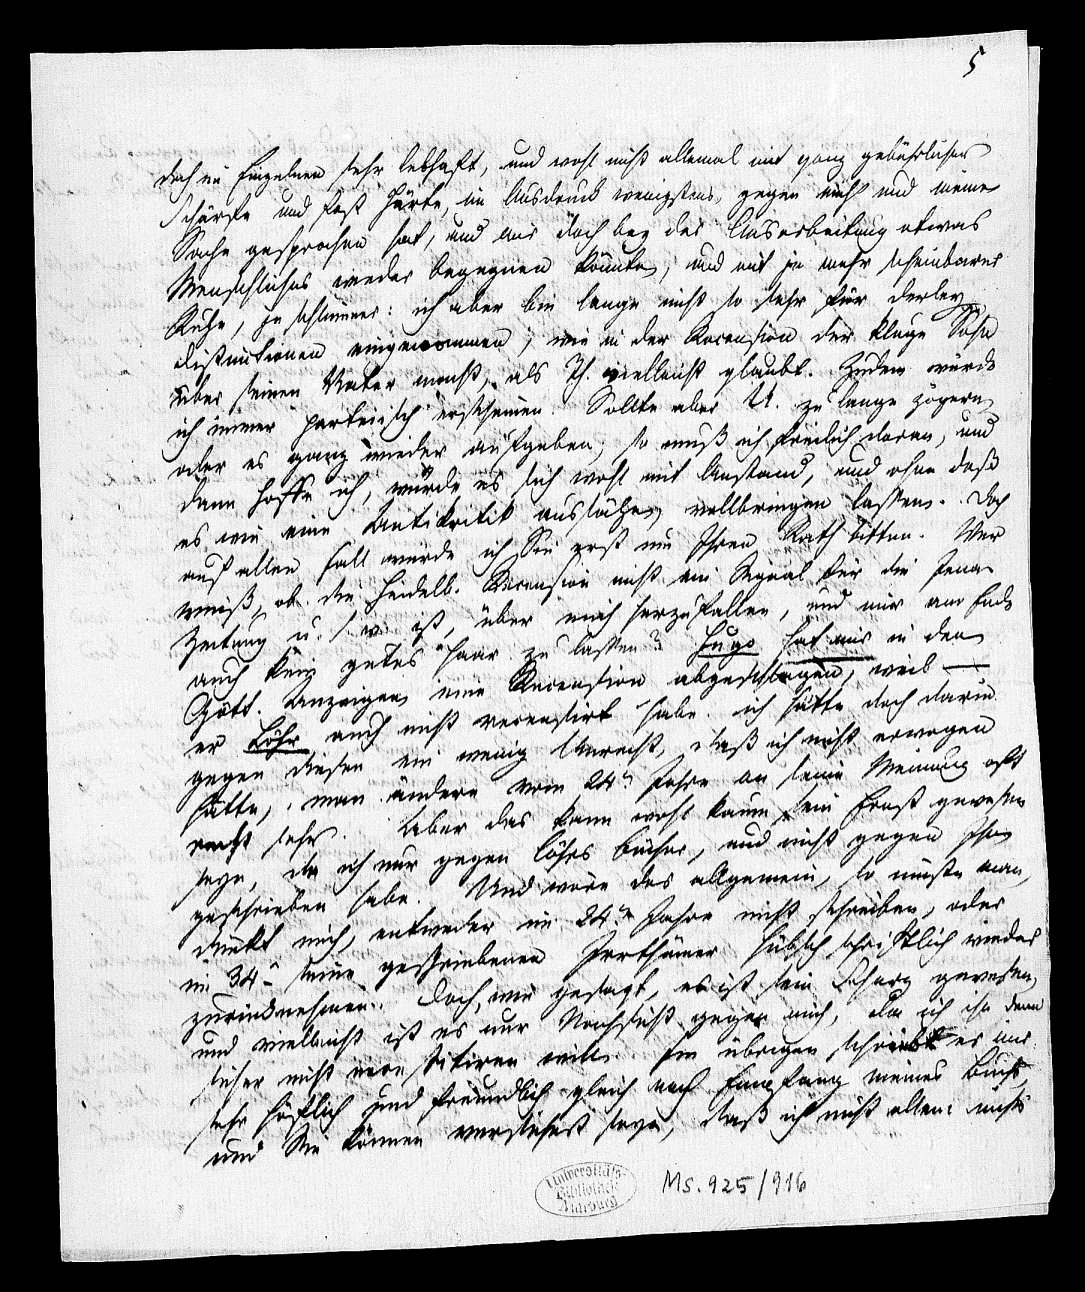 5
doch im Einzelnen sehr lebhaft, und wohl nicht allemal mit ganz gebührlicher
Schärfe und fast Härte, im Ausdruck wenigstens, gegen mich und meine
Sache gesprochen hat, und uns doch bey der Ausarbeitung etwas
Menschliches wieder begegnen könnte, und mit je mehr scheinbarer
Ruhe, je schlimmer: ich aber bin lange nicht so sehr für derley
distinctionen eingenommen, wie in der Recension der kluge Sohn
über seinen Vater macht, als Th. vielleicht glaubt. Zudem würde
ich immer parteiisch erscheinen. Sollte aber U. zu lange zögern,
oder es ganz wieder aufgeben, so muß ich freilich daran, und
dann hoffe ich, würde es sich wohl mit Anstand, und ohne daß
es wie eine Antikritik aussähe, vollbringen lassen. Doch
auf allen Fall werde ich Sie erst um Ihren Rath bitten. Wer
weiß, ob die Heidelb. Recension nicht ein Signal für die Jena.
Zeitung u. s. w. ist, über mich herzufallen, und mir am Ende
auch kein gutes Haar zu lassen? Hugo hat mir in den
Gött. Anzeigen eine Recension abgeschlagen, weil —
er Löhr auch nicht recensirt habe. ich hätte doch darin
gegen diesen ein wenig Unrecht, daß ich nicht erwogen
hätte, man ändere vom 24n Jahre an seine Meinung oft
recht sehr. Aber das kann wohl kaum sein Ernst gewesen
seyn, da ich nur gegen Löhrs Bücher, und nicht gegen Ihn
geschrieben habe. Und wäre das allgemein, so müßte man,
dünkt mich, entweder im 24n Jahre nicht schreiben, oder
im 34n seine geschriebenen Irrthümer hübsch schriftlich wieder
zurücknehmen. Doch, wie gesagt, es ist sein Scherz gewesen,
und vielleicht ist es nur Nachsicht gegen mich, da ich ihn denn
sicher nicht weiter will. Im übrigen schreibt er mir
sehr höflich und freundlich gleich nach Empfang meines Buchs,
und Sie können versichert seyn, daß ich nicht allein nichts
Universitäts-
Bibliothek
Marburg
Ms. 925/916